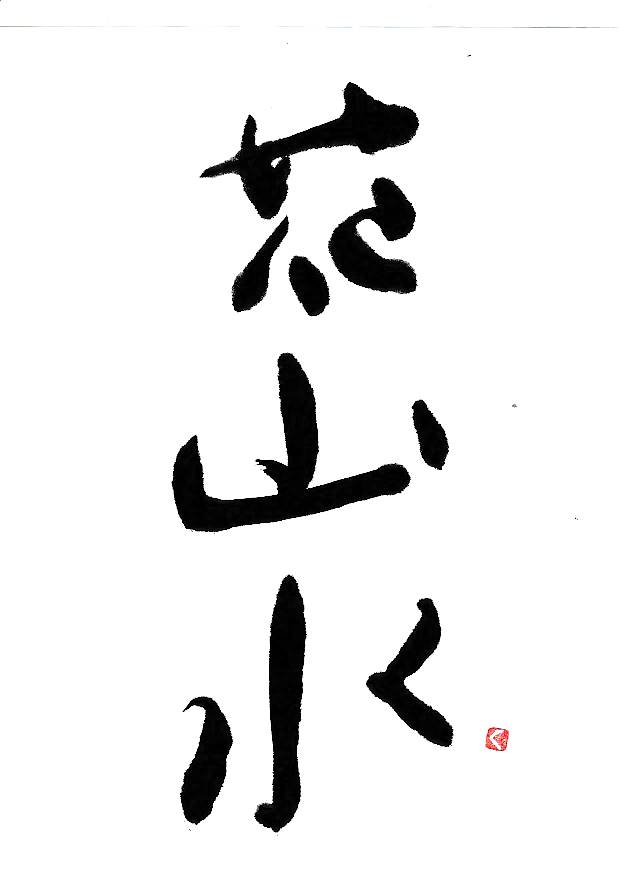 花山水
く